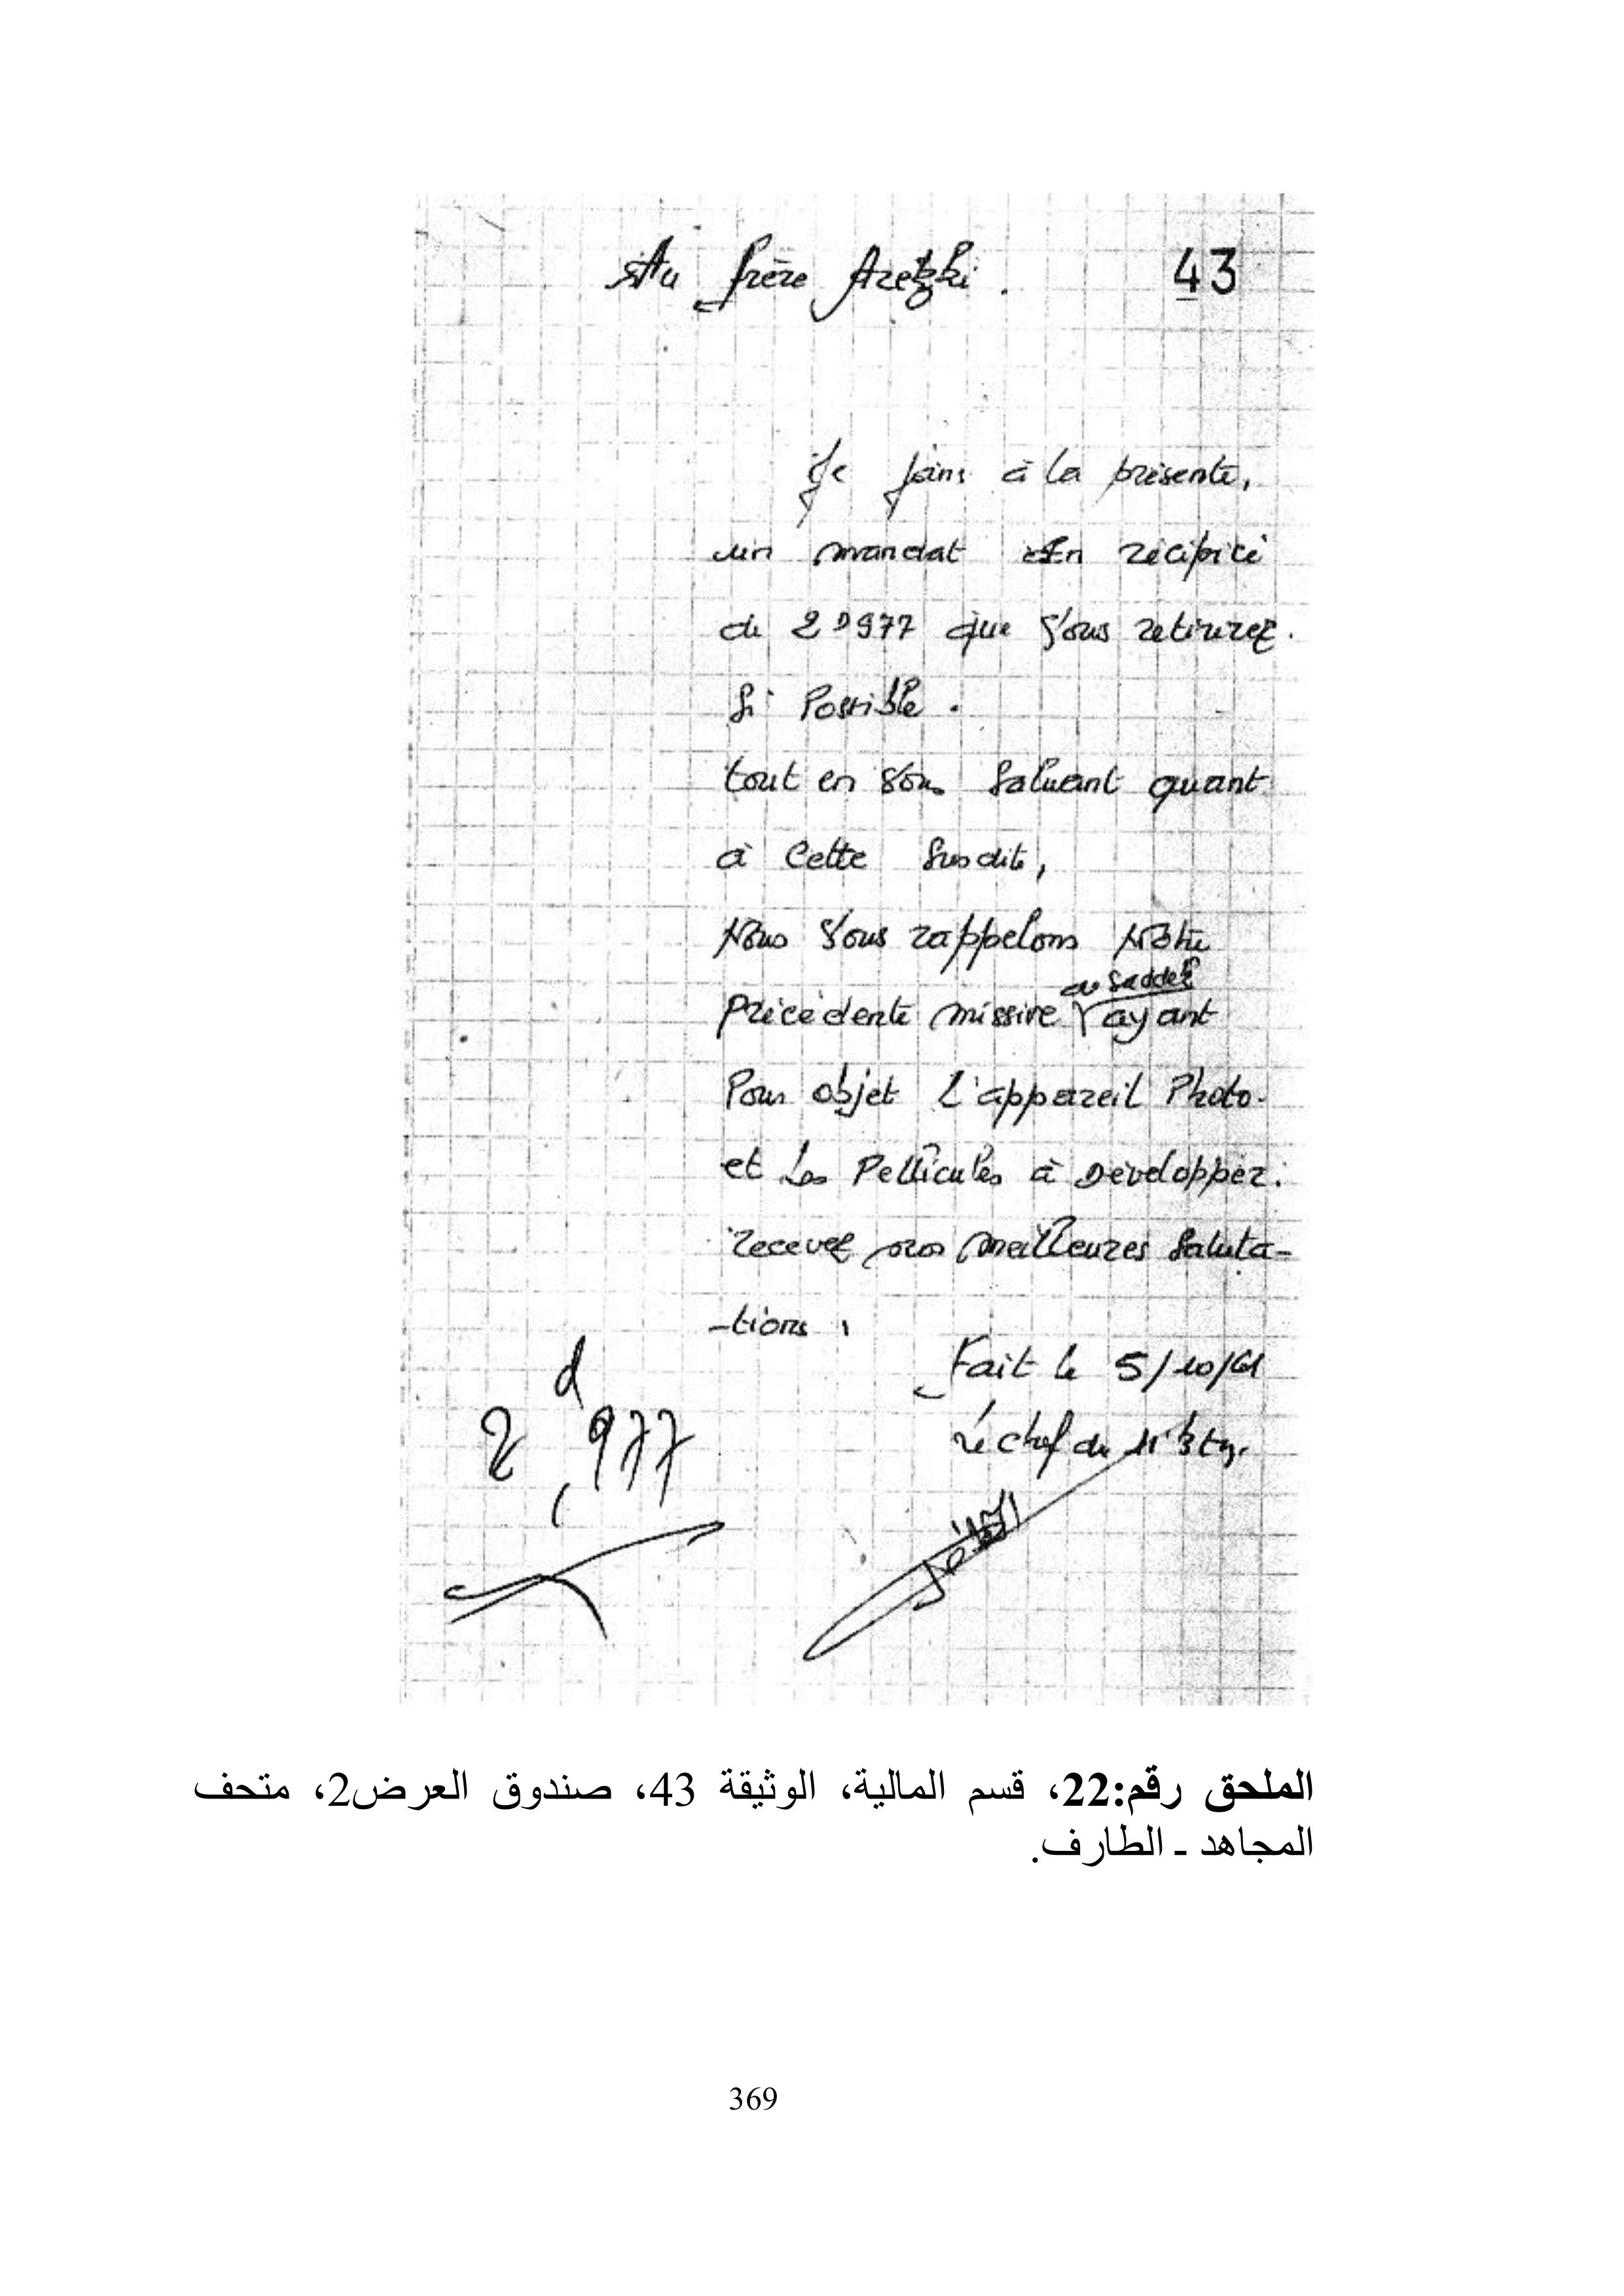 Au frère Aretzki.
43
Je joins à la présente,
un mandat En récipicé
de 2D977 que Vous retirerez.
Si Possible.
tout en Vous Saluant quant
à Cette Susdite,
Nous Vous rappelons Nôtre
au Saddek
Précédente missive ayant
Pour objet L'appareil Photo-
et Les Pellicules à Développer.
recevez nos meilleures Saluta-
-tions,
Fait le 5/10/61
Le chef du 11°
d
2,977
الملحق رقم:22، قسم المالية، الوثيقة 43، صندوق العرض2، متحف
المجاهد ـ الطارف.
369